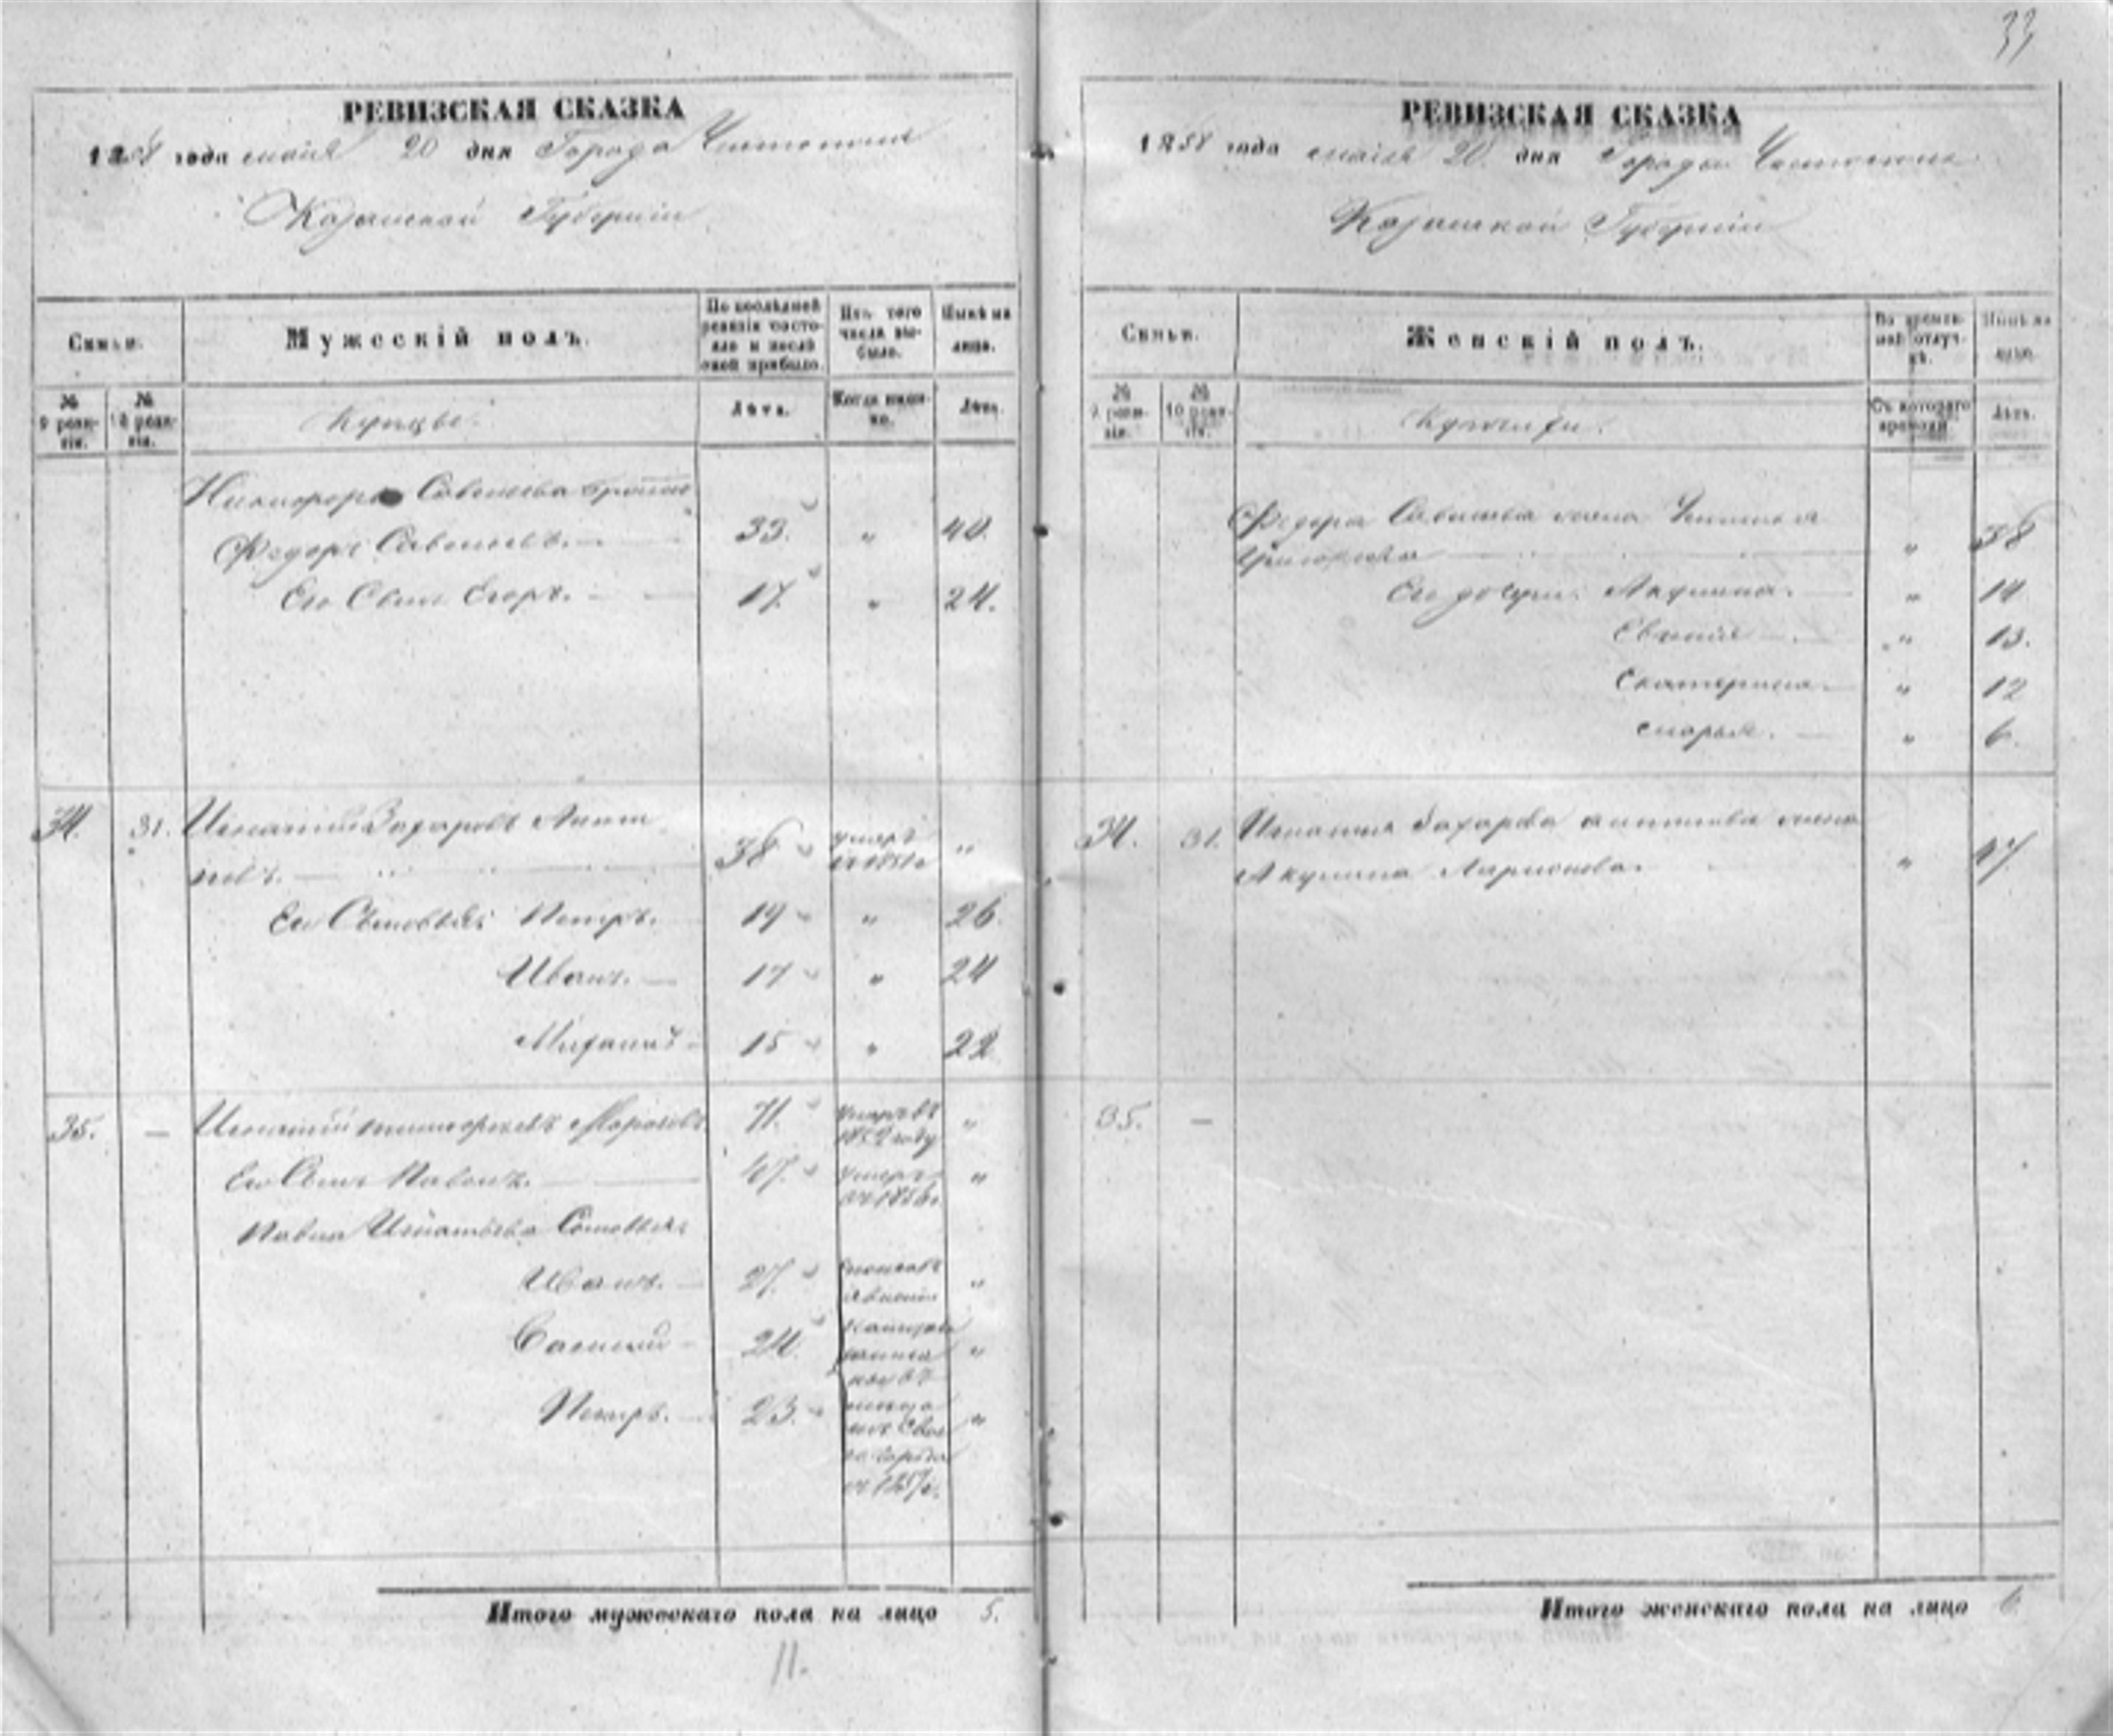 33
РЕВИЗСКАЯ СКАЗКА
1858 года маія 20 дня Города Чистополя
Казанской Губерніи
Семьи.
Мужескій полъ.
По послѣдней ревизіи состояло и послѣ оной прибыло.
Изъ того числа выбыло.
Нынѣ на лицо.
№ 9 ревизіи.
№ 10 ревизіи.
Купцы.
Лѣта.
Когда именно.
Лѣта.
Никифора Савельева братъ
Федоръ Савельевъ. 33. " 40.
Его Сынъ Егоръ. 17. " 24.
34. 31. Игнатий Захаровъ
38 умеръ въ 1851 г "
Его Сыновья: Петръ. 19 " 26
Иванъ. 17 " 24
Михаилъ 15 " 22
35. — Игнатий Морозовъ 71. умеръ въ 1852 году "
Его Сынъ Павелъ. 47. умеръ въ 1856 г. "
Павла Игнатьева Сыновья:
Иванъ. 27. "
Василий 24. "
Петръ. 23. "
города
въ 1857 г.
Итого мужескаго пола на лицо 5.
11.
РЕВИЗСКАЯ СКАЗКА
1858 года маія 20 дня Города Чистополя
Казанской Губерніи
Семьи.
Женскій полъ.
Во временной отлучкѣ.
Нынѣ на лицо.
№ 9 ревизіи.
№ 10 ревизіи.
Съ котораго времени.
Лѣта.
Федора Савельева жена
Григорьева " 38
Его дочери: Акулина. " 14
" 13.
Екатерина. " 12
Марья. " 6.
34. 31. Игнатия Захарова жена
Акулина Ларионова. " 47
35. —
Итого женскаго пола на лицо 6